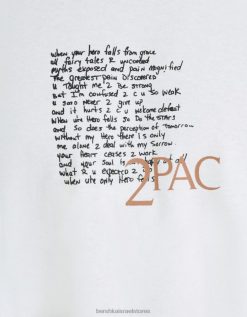 when your hero falls from grace
all fairy tales R uncovered
myths exposed and pain magnified
The greatest pain Discovered
U Taught me 2 Be strong
But I'm confused 2 c u so weak
u said never 2 give up
and it hurts 2 c u welcome defeat
when ure Hero falls so Do the stars
and so does the perception of Tomorrow
without my Hero there is only
me alone 2 deal with my sorrow
your Heart ceases 2 work
and your soul is
what R u expected 2 Do
when ure only Hero falls
2PAC